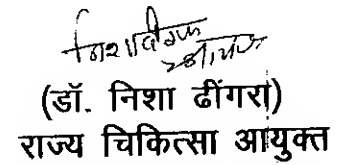 (डॉ. निशा ढींगरा)
राज्य चिकित्सा आयुक्त